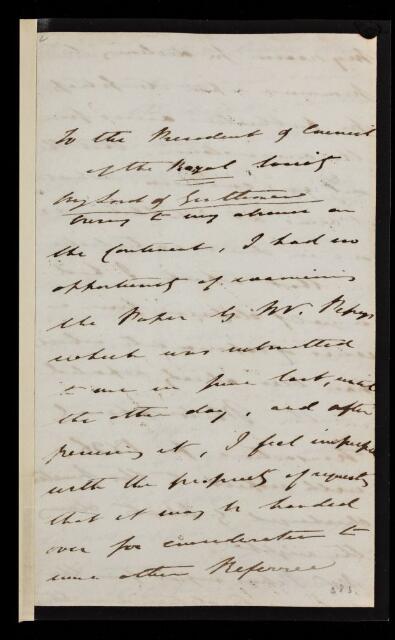 2
To the President & Council
of the Royal Society
My Lord & Gentlemen
Owing to my absence on
the Continent, I had no
opportunity of examining
the Paper by Mr. Pepys
which was submitted
to me in June last, until
the other day, and after
perusing it, I feel
with the propriety of
that it may be handed
over for consideration to
some other Referree
383